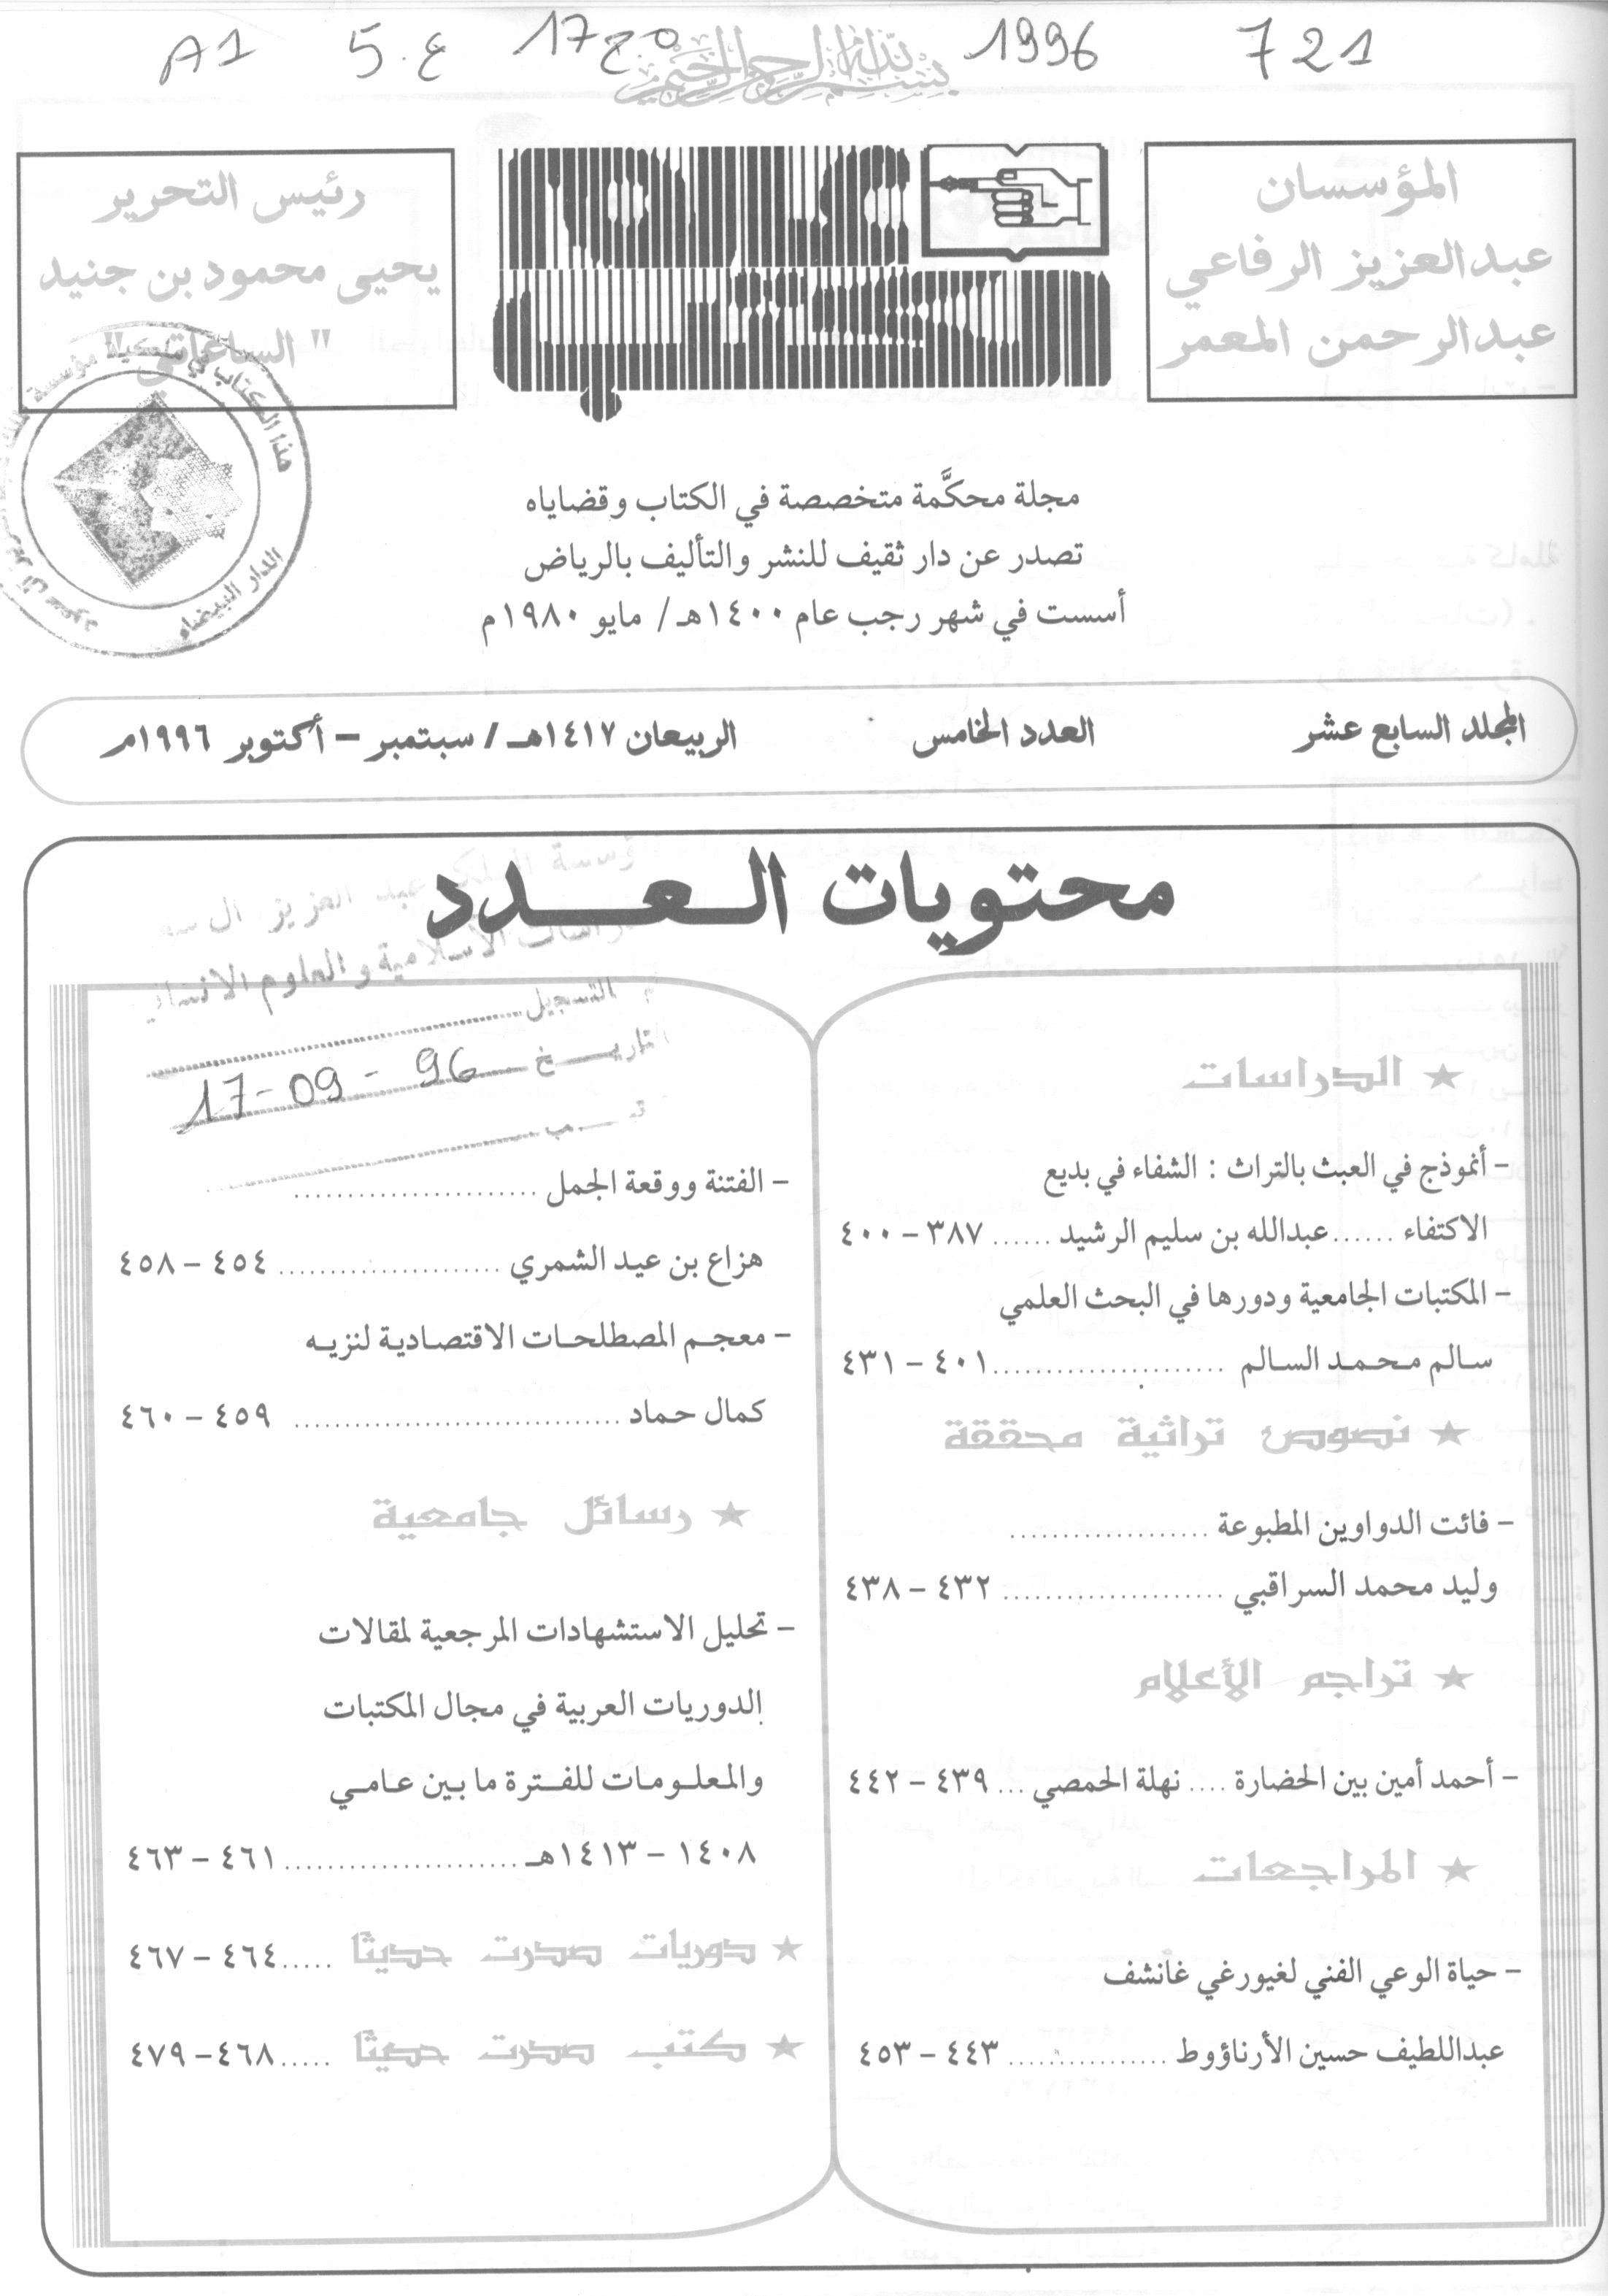 721
1996
17 مج
ع. 5
A1
بسم الله الرحمن الرحيم
المؤسسان
عبدالعزيز الرفاعي
عبدالرحمن المعمر
عالم الكتب
رئيس التحرير
يحيى محمود بن جنيد
"الساعاتي"
مجلة محكَّمة متخصصة في الكتاب وقضاياه
تصدر عن دار ثقيف للنشر والتأليف بالرياض
أسست في شهر رجب عام ١٤٠٠هـ/ مايو ١٩٨٠م
هذا الكتاب في ملكية مؤسسة
الدار البيضاء
المجلد السابع عشر العدد الخامس الربيعان ١٤١٧هـ / سبتمبر – أكتوبر ١٩٩٦م
محتويات العـــدد
مؤسسة الملك عبد العزيز آل سعود
الاسلامية و العلوم الانسانية
التسجيل
التاريـــخ 17-09-96
★ الدراسات
– أنموذج في العبث بالتراث : الشفاء في بديع
الاكتفاء ......عبدالله بن سليم الرشيد ...... ٣٨٧ – ٤٠٠
– المكتبات الجامعية ودورها في البحث العلمي
سالم محمد السالم ......................٤٠١ – ٤٣١
★ نصوص تراثية محققة
– فائت الدواوين المطبوعة ....................
وليد محمد السراقبي ...................... ٤٣٢ – ٤٣٨
★ تراجم الأعلام
– أحمد أمين بين الحضارة .... نهلة الحمصي ... ٤٣٩ – ٤٤٢
★ المراجعات
– حياة الوعي الفني لغيورغي غانشف
عبداللطيف حسين الأرناؤوط ................ ٤٤٣ – ٤٥٣
– الفتنة ووقعة الجمل ........................
هزاع بن عيد الشمري ...................... ٤٥٤ – ٤٥٨
– معجم المصطلحات الاقتصادية لنزيه
كمال حماد ................................ ٤٥٩ – ٤٦٠
★ رسائل جامعية
– تحليل الاستشهادات المرجعية لمقالات
الدوريات العربية في مجال المكتبات
والمعلومات للفترة ما بين عامي
١٤٠٨ – ١٤١٣هـ ....................... ٤٦١ – ٤٦٣
★ دوريات صدرت حديثا .....٤٦٤ – ٤٦٧
★ كتب صدرت حديثا .....٤٦٨ – ٤٧٩